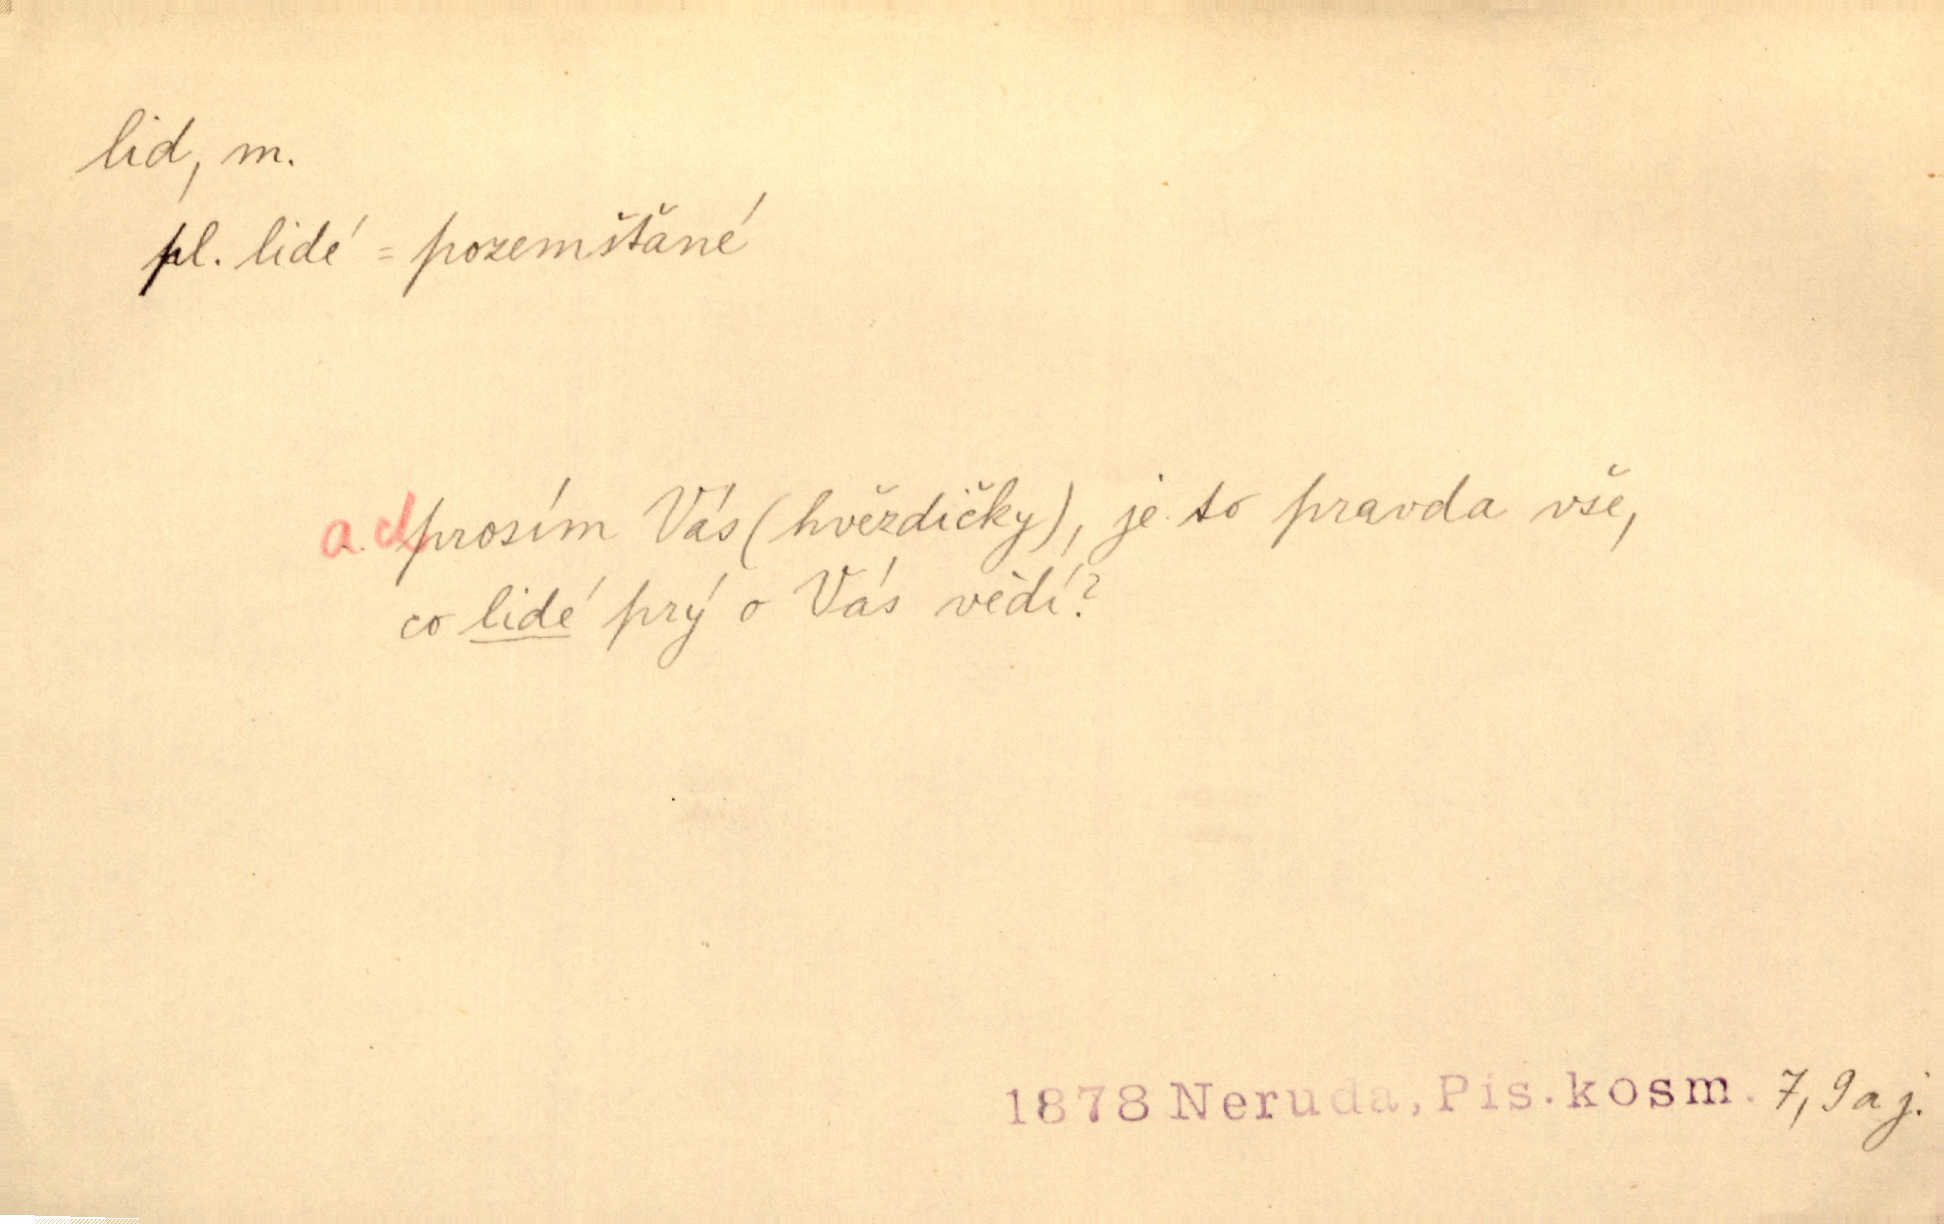 lid, m.
pl. lidé = pozemšťané
a d prosím Vás (hvězdičky), je to pravda vše,
co lidé prý o Vás vědí?
1878 Neruda, Pís. kosm. 7, 9 a j.